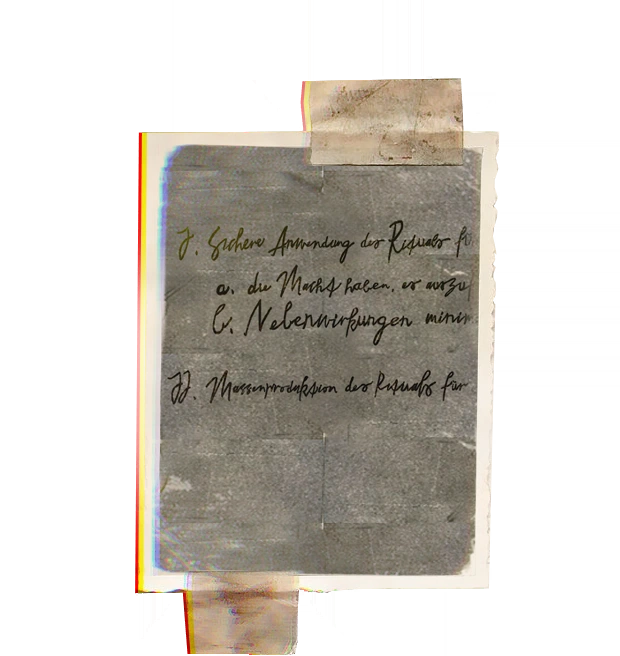 I. Sichere Anwendung des Rituals fü
a. die Macht haben, es auszu
b. Nebenwirkungen minim
II. Massenproduktion des Rituals für